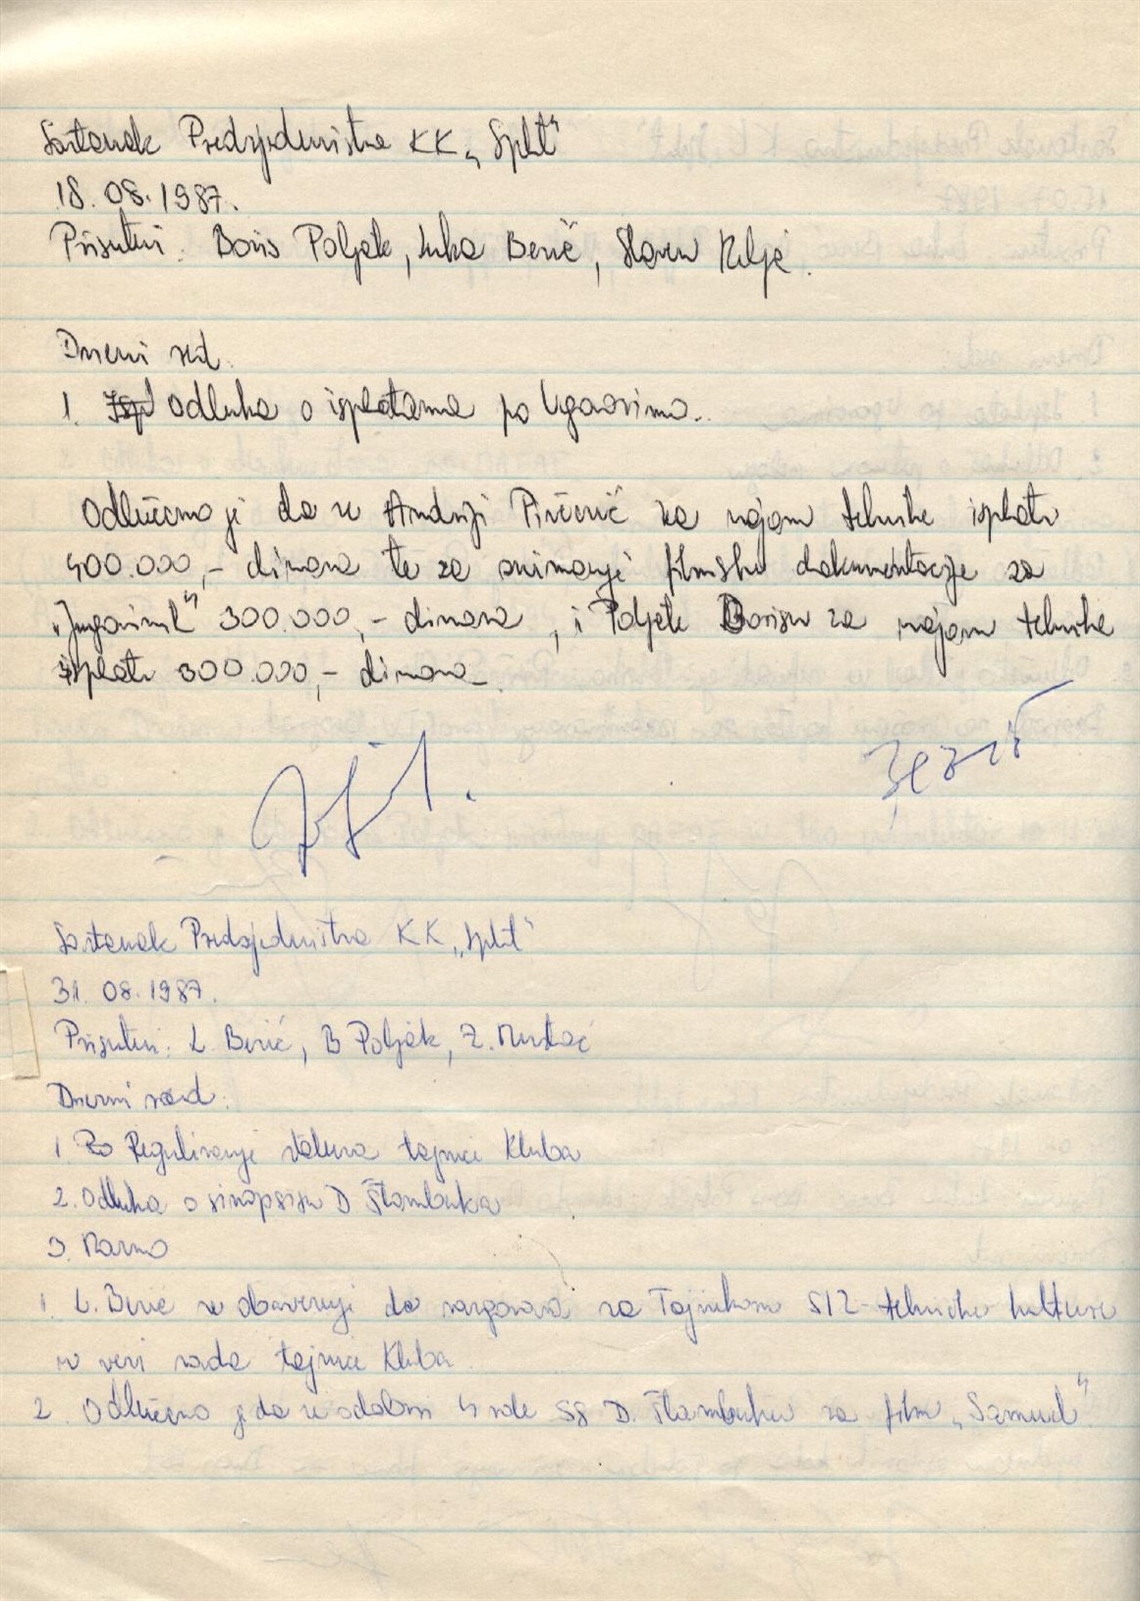 Sastanak Predsjedništva KK „Split"
18. 08. 1987.
Prisutni: Boris Poljak, Luka Bezić, Slaven Relja.
Dnevni red.
1. Ispl Odluka o isplatama po Ugovorima.
Odlučeno je da se Andriji Pivčević za najam tehnike isplati
400.000,- dinara te za snimanje filmske dokumentacije za
„Jugovinil" 300.000,- dinara, i Poljak Borisu za najam tehnike
isplati 300.000,- dinara.
Bezić
Sastanak Predsjedništva KK „Split"
31. 08. 1987.
Prisutni: L. Bezić, B Poljak, Z. Mustać
Dnevni red:
1. Ro Reguliranje statusa tajnice Kluba
2. Odluka o sinopsisu D Štambuka
3. Razno
1. L. Bezić se obavezuje da razgovara sa Tajnikom SIZ-tehničke kulture
u vezi rada tajnice Kluba.
2. Odlučeno je da se odobri 4 role S8 D. Štambuku za film „Samuel".